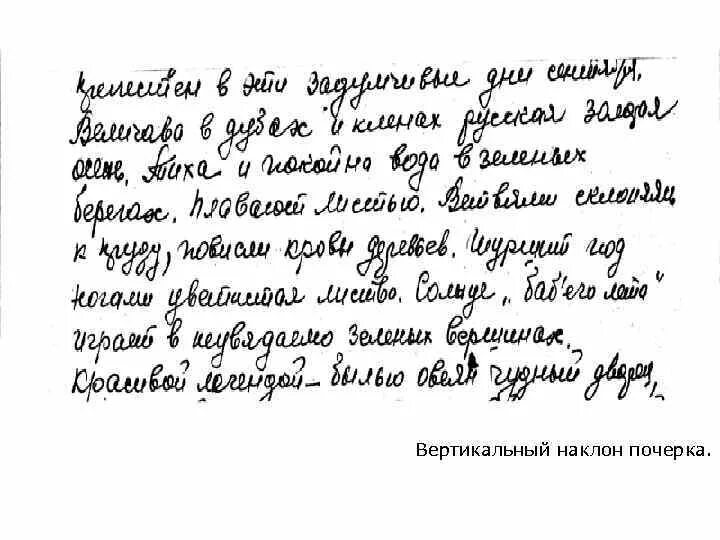 в эти задумчивые дни сентября.
Величава в дубах и кленах русская золотая
осень. Тиха и покойна вода в зеленых
берегах. Плавают листью. Ветвями склонилась
к пруду, повисли кроны деревьев. Шуршит под
ногами цветистая листва. Солнце „баб'его лета"
играет в неувядаемо зеленых вершинах.
Красивой легендой – былью овеян чудный дворец,
Вертикальный наклон почерка.